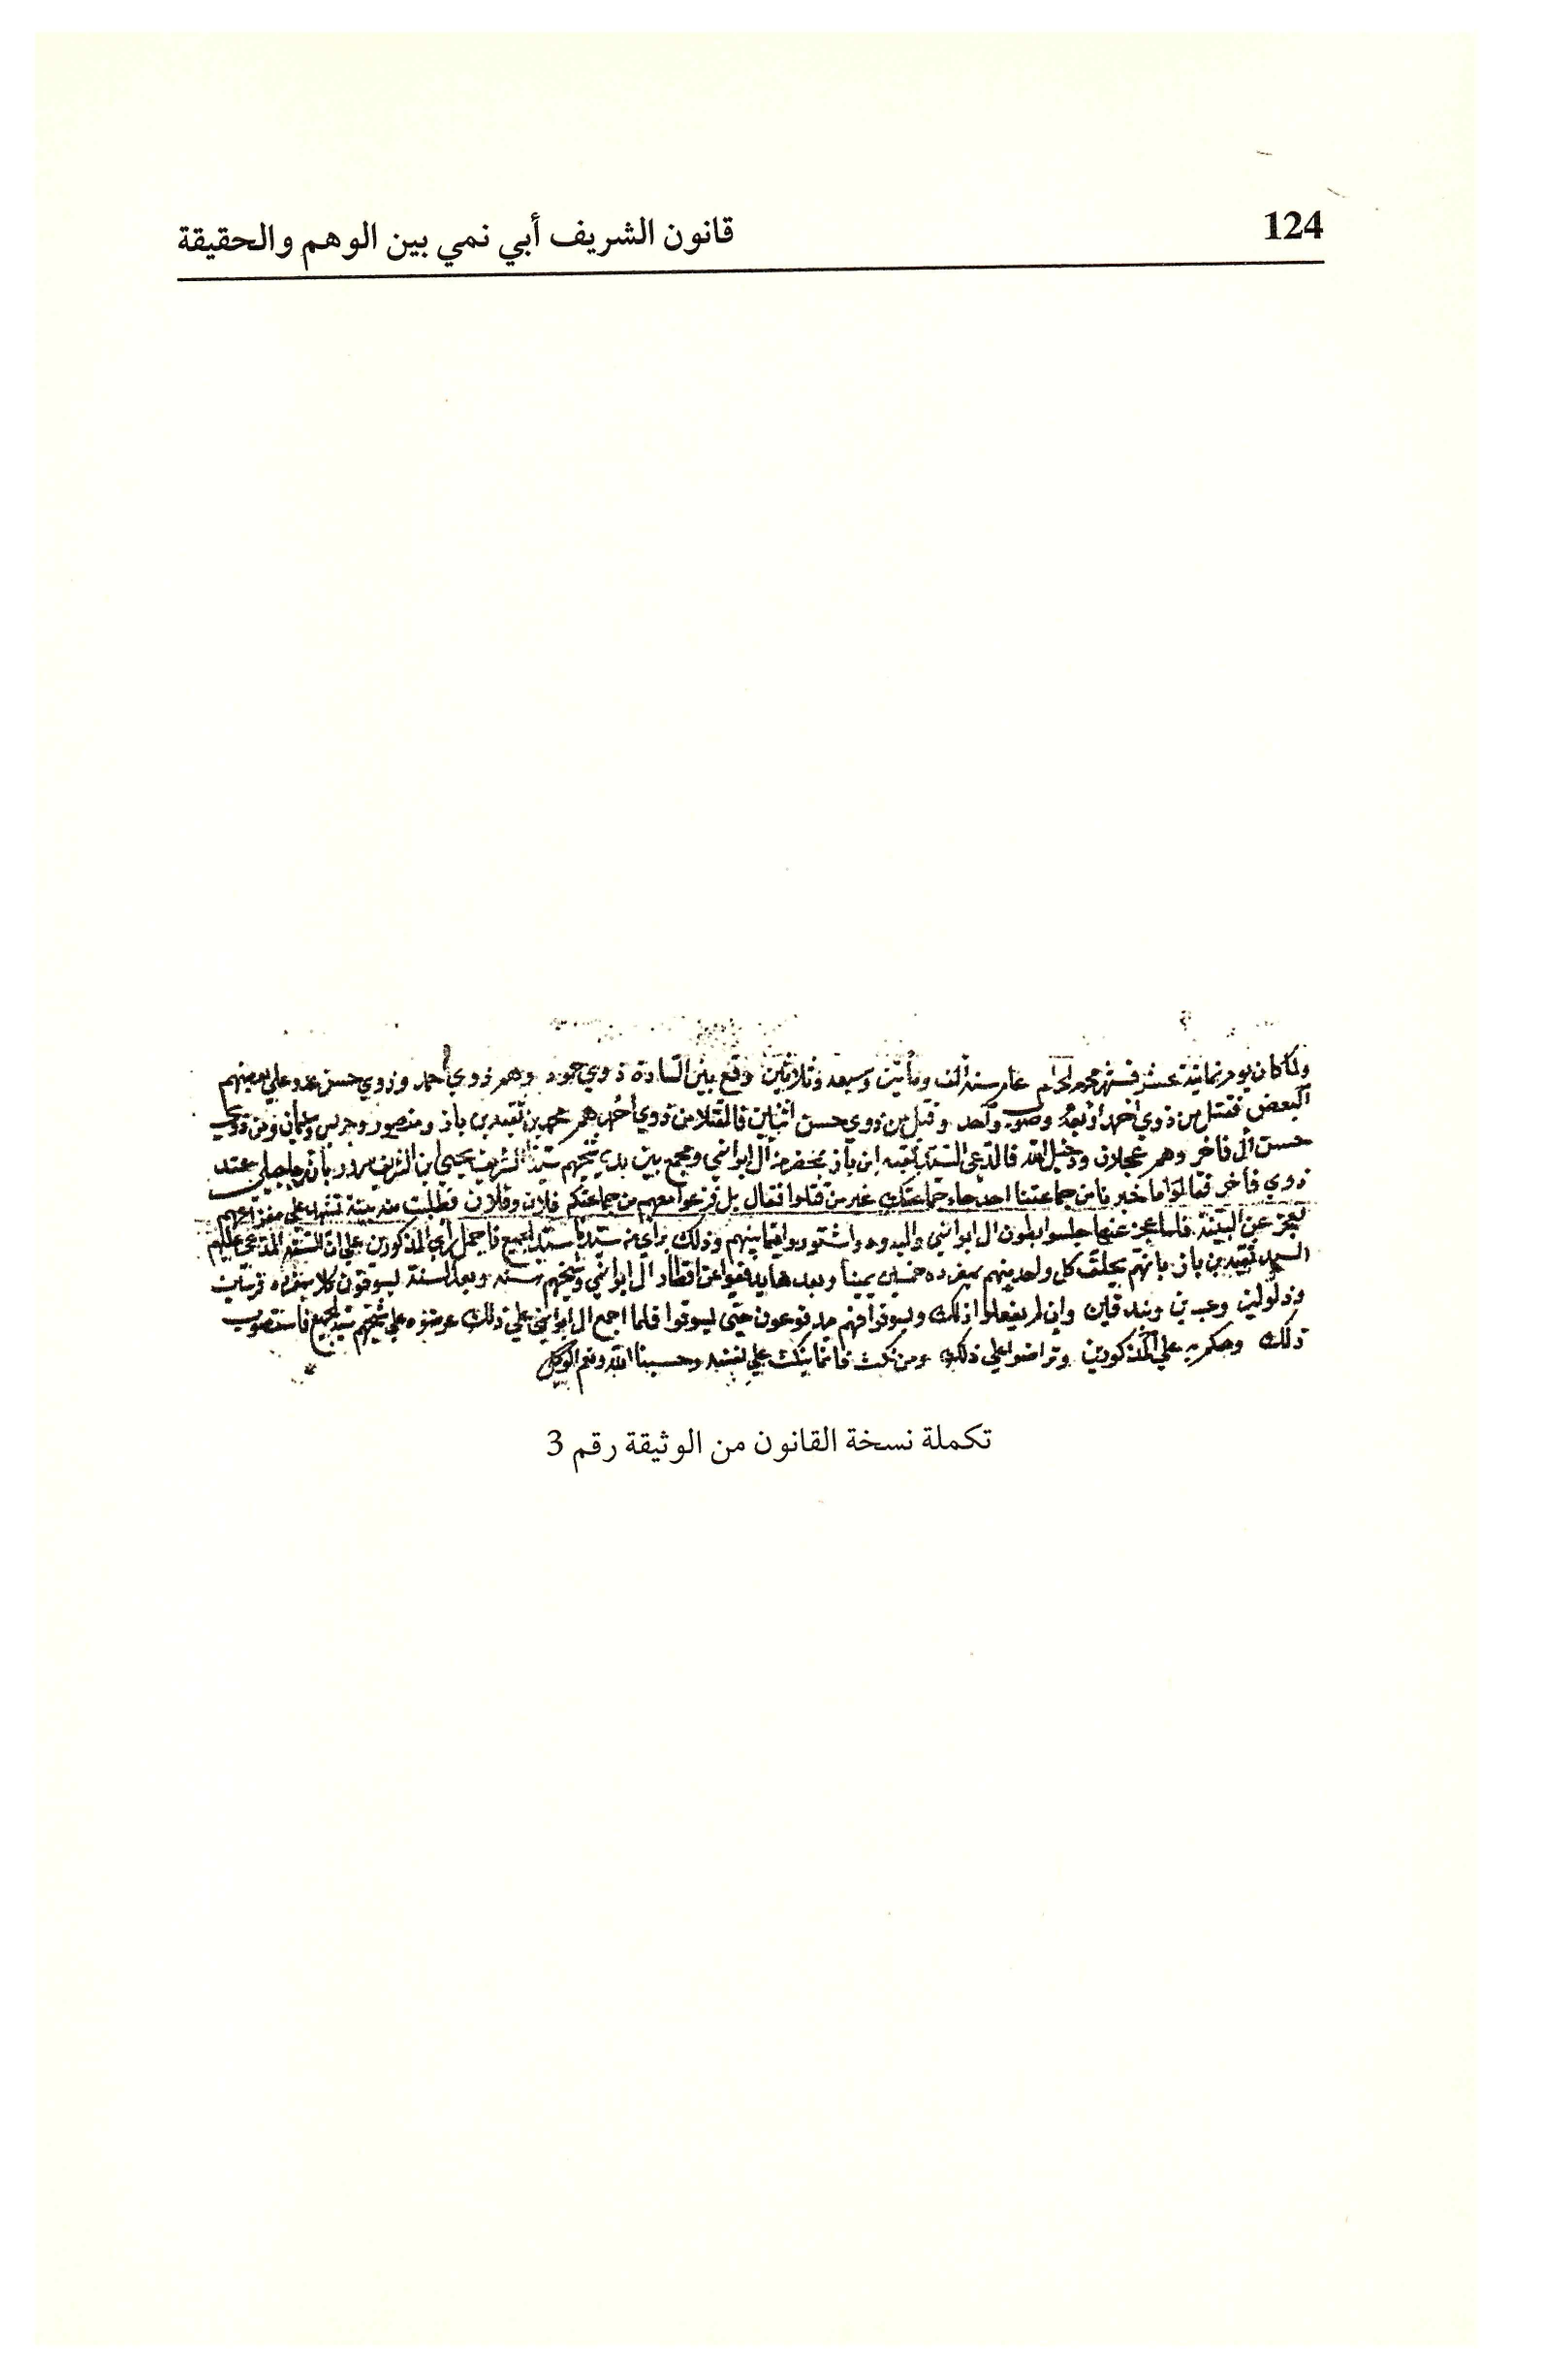 124
قانون الشريف أبي نمي بين الوهم والحقيقة
ولما كان يوم ثمانية عشر فى شهر محرم الحرام عام سنة الف ومأتين وسبعه وثلاثين وقع بين السادة ذوي حمود وهم ذوي أحمد وذوي حسن على بعضهم
البعض فقتل من ذوي احمد اربعة وصوب واحد وقتل من ذوي حسن اثنين فالقتلا من ذوي أحمد هم محمد بن ثقبه بن باز ومنصور وجريس وعثمان ومن ذوي
حسن آل فاخر وهم عجلان ودخيل الله فالدعى السيد ثقبه ابن باز بمحضر من آل ابو انمي ومجمع بين يدي شيخهم سيدنا الشريف يحيى ابن الشريف سرور بان عند
ذوي فاخر فقالوا ما خبرنا من جماعتنا احد جاء جماعتك غير من قتلوا فقال بل فزعوا معهم من جماعتكم فلان وفلان فطلبت منه بينة تشهد على مفزاعهم
فعجز عن البينة فلما عجز عنها جلسوا بطون ال ابوانمي والبدوه واشتوروا فيما بينهم وذلك براي من سيدنا سيد الجميع فاجمل رأي المذكورين على ان المدعى عليهم
السيد ثقبه بن باز بانهم يحلف كل واحد منهم بمفرده خمسين يمينا وبعدها يدفقوا عن اقطار ال ابوانمي وشيخهم سنه وبعد السنة يسوقون كلا بمفرده
وذلولين وعبدين وبندقين وان لم يفعلوا ذلك ويسوقوا فهم مدفوعون حتى يسوقوا فلما اجمع ال ابوانمي على ذلك عرضوه على شيخهم سيد الجميع فاستصوب
ذلك وحكم به على المذكورين وتراضوا على ذلك ومن نكث فانما ينكث على نفسه وحسبنا الله ونعم الوكيل
تكملة نسخة القانون من الوثيقة رقم 3